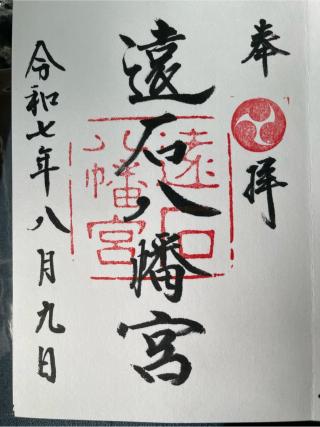 奉拝
遠石八幡宮
遠石
八幡宮
令和七年八月九日